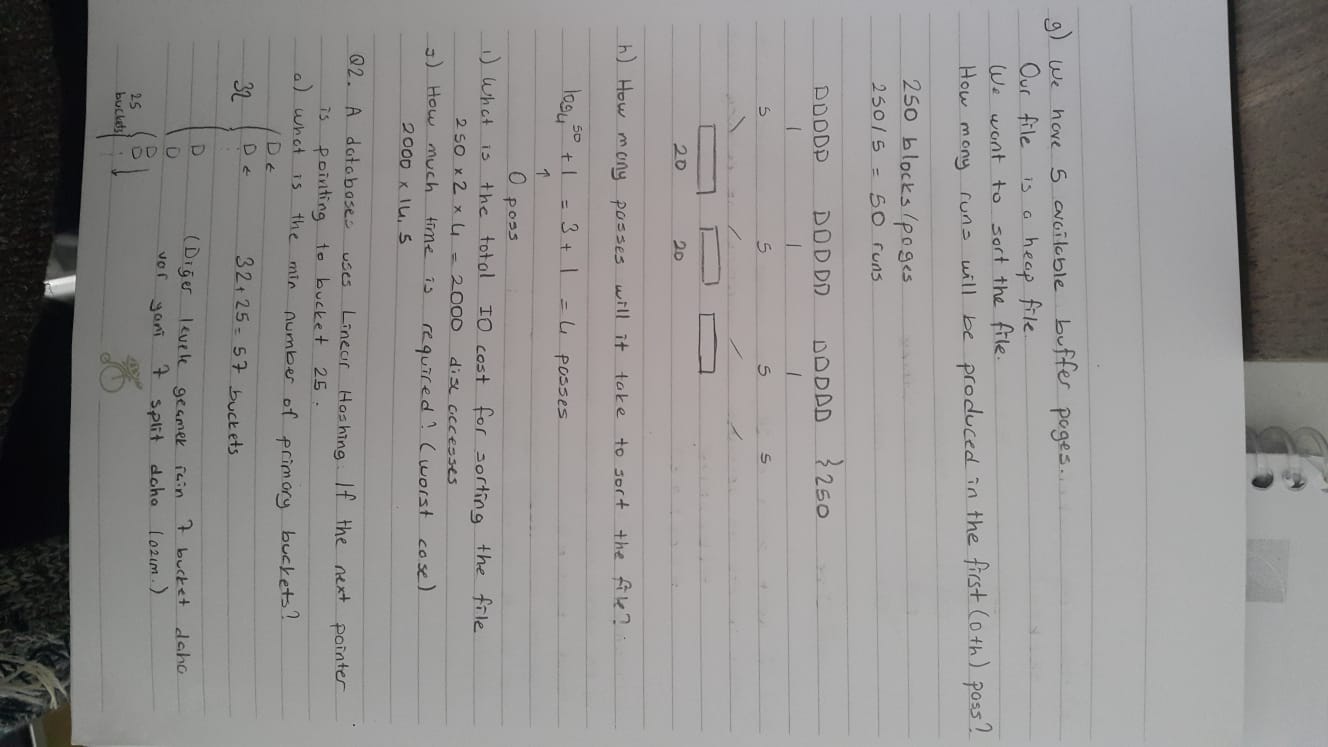 g) We have 5 available buffer pages..
Our file is a heap file.
We want to sort the file.
How many runs will be produced in the first (0th) pass?
250 blocks/pages
250/5 = 50 runs
DDDDD DDDDD DDDDD }250
5 5 5 5
20 20
h) How many passes will it take to sort the file?
log₄⁵⁰ + 1 = 3 + 1 = 4 passes
↑
0 pass
i) What is the total IO cost for sorting the file
250 x 2 x 4 = 2000 disc accesses
j) How much time is required? (worst case)
2000 x 14,5
Q2. A databases uses Linear Hashing. If the next pointer
is pointing to bucket 25.
a) what is the min number of primary buckets?
D ←
32 D ← 32+25 = 57 buckets
D (Diğer levele geçmek için 7 bucket daha
D var yani 7 split daha lazım.)
D
25 D
buckets